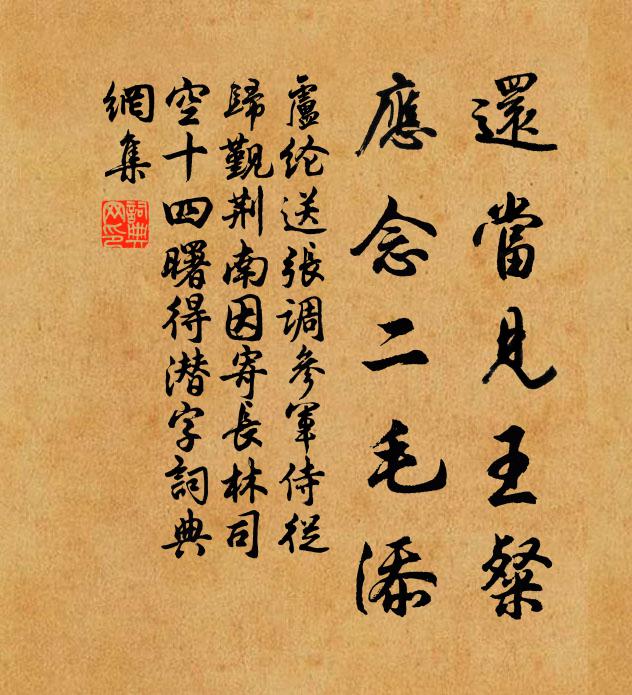 還當見王粲
應念二毛添
盧綸送張調參軍侍從
歸覲荆南因寄長林司
空十四曙得潛字詞典
網集
詞典
网印